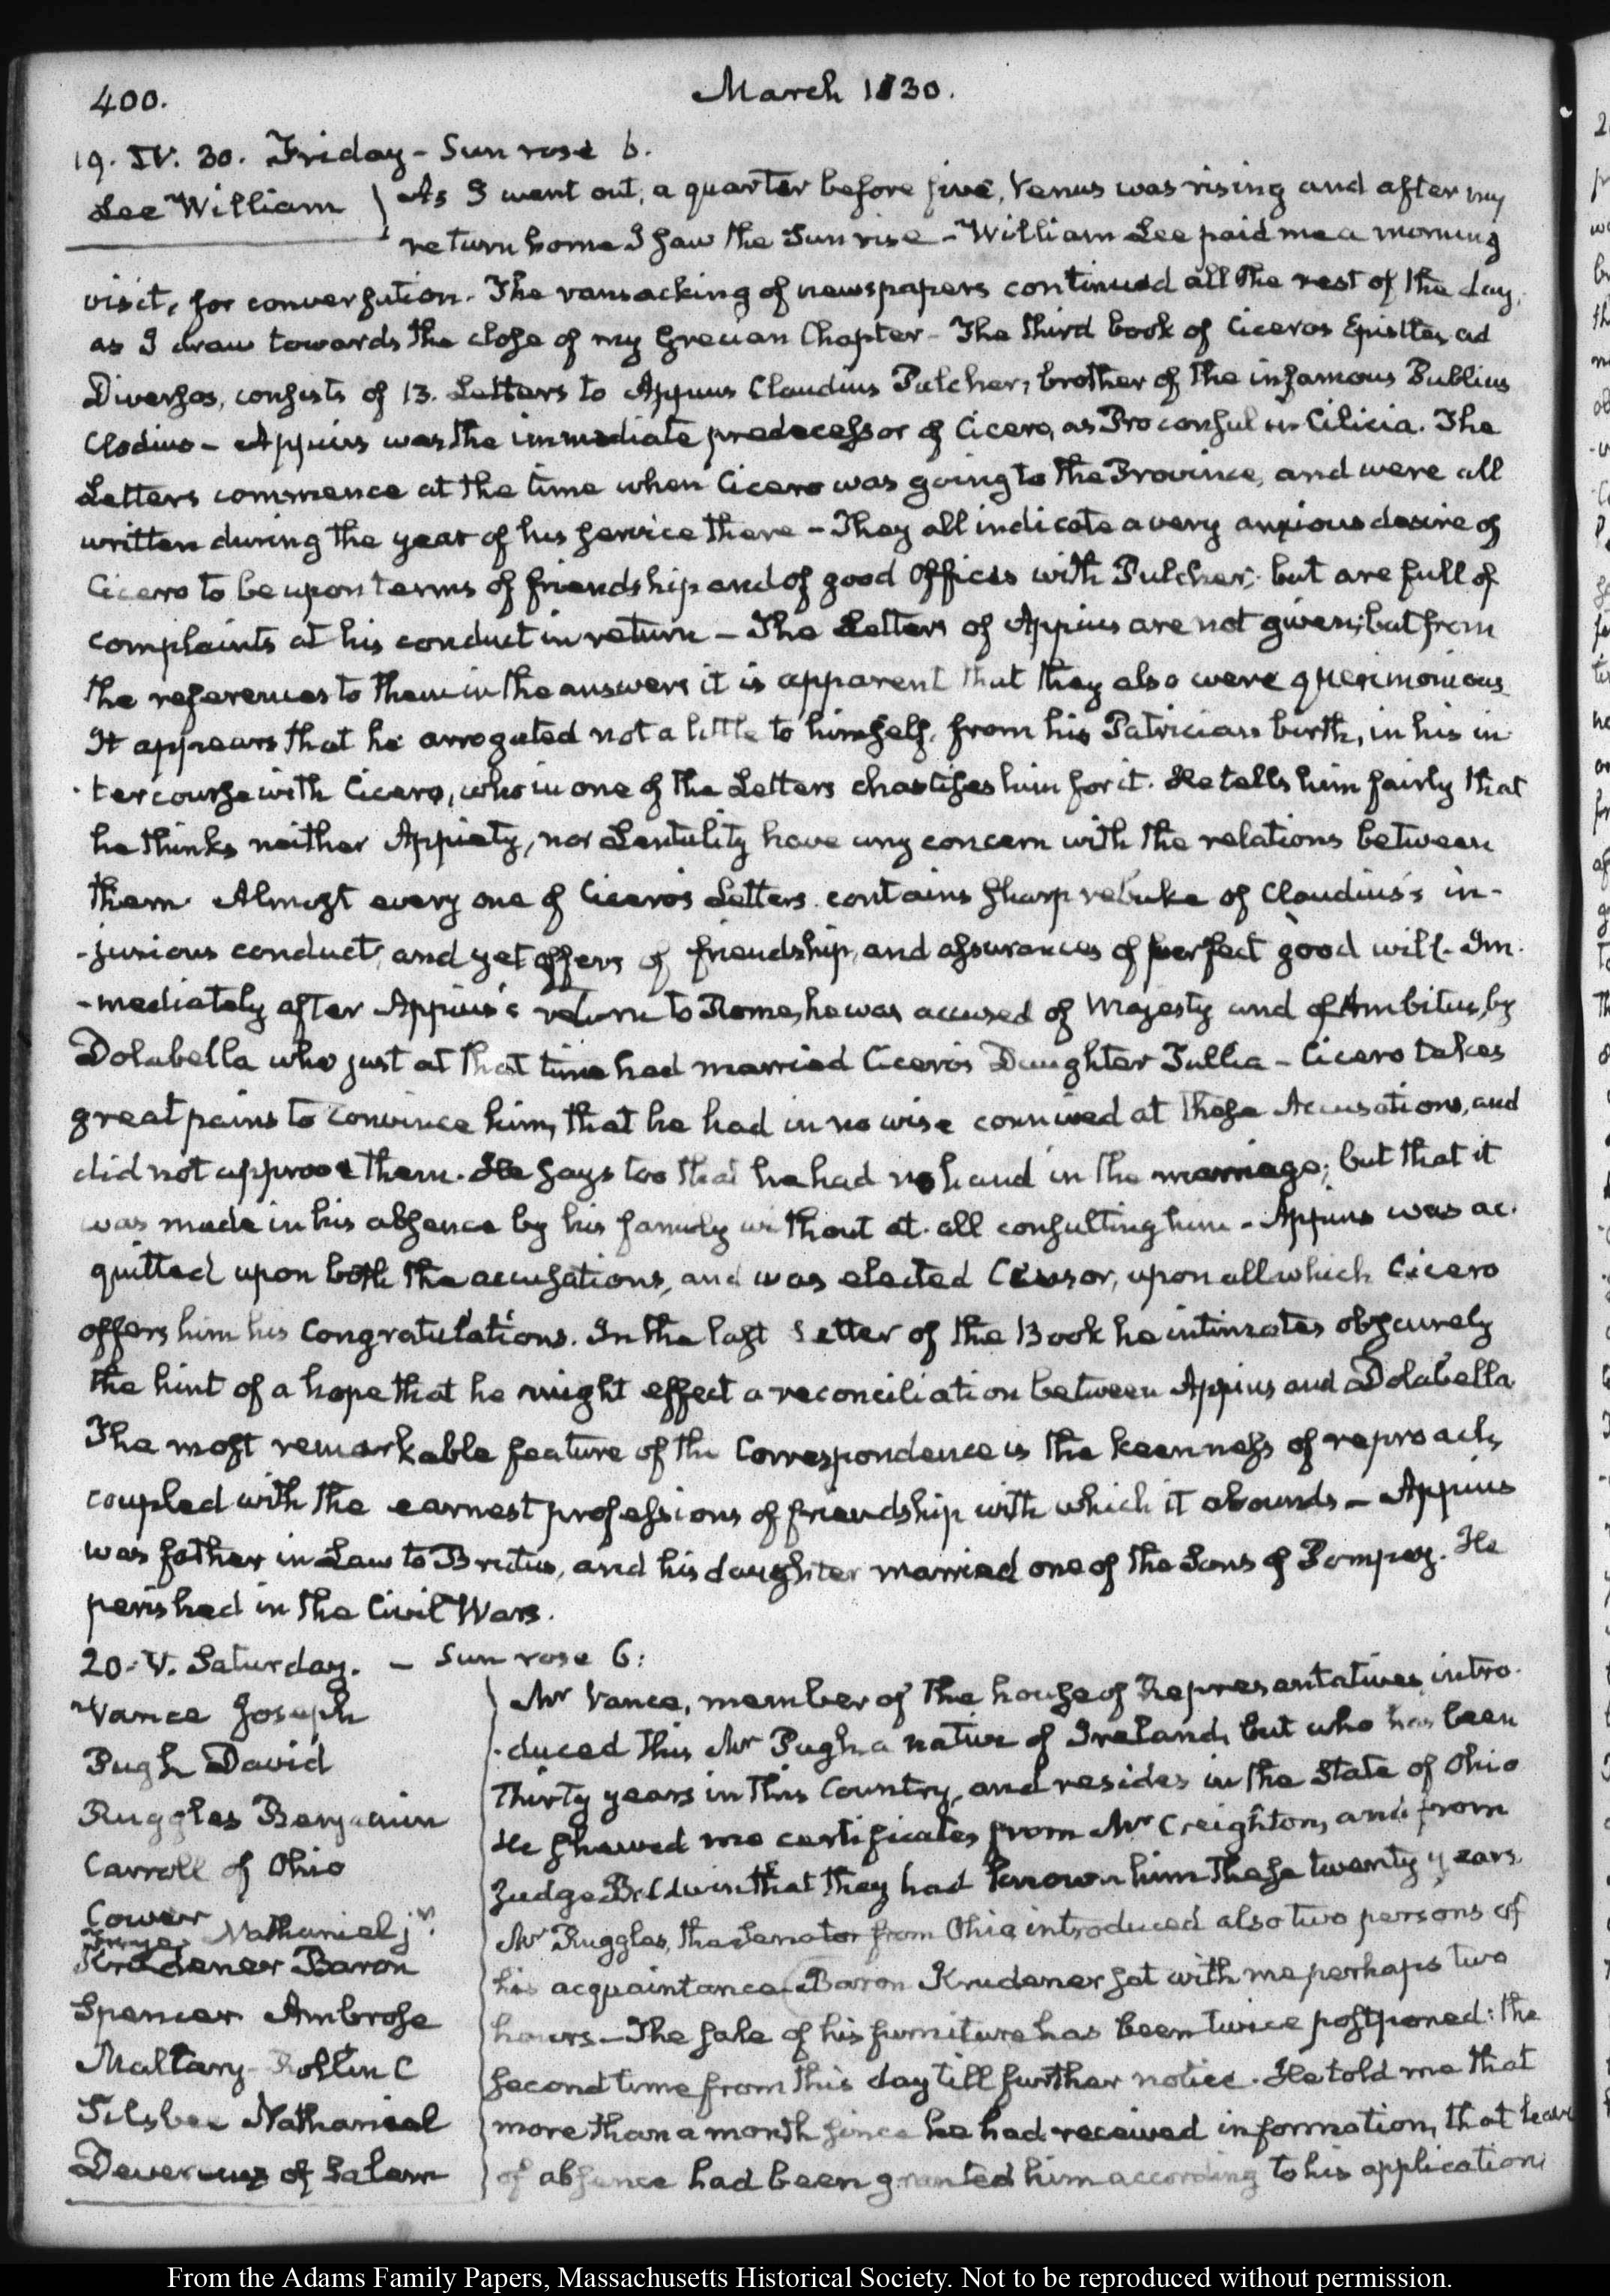 400.
March 1830.
19. IV. 30. Friday - Sun rose 6.
Lee William
As I went out, a quarter before five, Venus was rising and after my
return home I saw the Sun rise - William Lee paid me a morning
visit, for conversation. The ransacking of newspapers continued all the rest of the day,
as I draw towards the close of my Grecian Chapter - The third book of Ciceros Epistles, ad
Diversos, consists of 13. Letters to Appius Claudius Pulcher, brother of the infamous Publius
Clodius - Appius was the immediate predecessor of Cicero, as Proconsul in Cilicia. The
Letters commence at the time when Cicero was going to the Province, and were all
written during the year of his service there - They all indicate a very anxious desire of
Cicero to be upon terms of friendship and of good Offices with Pulcher; but are full of
complaints at his conduct in return - The Letters of Appius are not given; but from
the references to them in the answers it is apparent that they also were querimonious
It appears that he arrogated not a little to himself, from his Patrician birth, in his in
-tercourse with Cicero, who in one of the Letters chastises him for it. He tells him fairly that
he thinks neither Appiety, nor Lentulity have any concern with the relations between
them. Almost every one of Cicero's Letters contains sharp rebuke of Claudius's in-
-jurious conduct, and yet offers of friendship, and assurances of perfect good will. Im-
-mediately after Appius's return to Rome, he was accused of Majesty and of Ambitus, by
Dolabella who just at that time had married Cicero's Daughter Tullia - Cicero takes
great pains to convince him, that he had in no wise connived at these Accusations, and
did not approve them. He says too that he had no hand in the marriage; but that it
was made in his absence by his family without at all consulting him - Appius was ac-
quitted upon both the accusations, and was elected Censor, upon all which Cicero
offers him his Congratulations. In the last Letter of the Book he intimates obscurely
the hint of a hope that he might effect a reconciliation between Appius and Dolabella
The most remarkable feature of the Correspondence is the keenness of reproach,
coupled with the earnest professions of friendship with which it abounds - Appius
was father in Law to Brutus, and his daughter married one of the Sons of Pompey. He
perished in the Civil Wars.
20. V. Saturday. - Sun rose 6:
Vance Joseph
Pugh David
Ruggles Benjamin
Carroll of Ohio
Cower
Nathaniel jr.
Krudener Baron
Spencer Ambrose
Maltary Rollin C
Silsbee Nathaniel
Devereux of Salem
Mr Vance, member of the house of Representatives intro-
-duced this Mr Pugh a native of Ireland, but who has been
thirty years in this Country, and resides in the State of Ohio
He shewed me certificates from Mr Creighton, and from
Judge Baldwin that they had known him these twenty years.
Mr Ruggles, the Senator from Ohio introduced also two persons of
his acquaintance. Baron Krudener sat with me perhaps two
hours - The sale of his furniture has been twice postponed: the
second time from this day till further notice. He told me that
more than a month since he had received information, that leave
of absence had been granted him according to his application
From the Adams Family Papers, Massachusetts Historical Society. Not to be reproduced without permission.